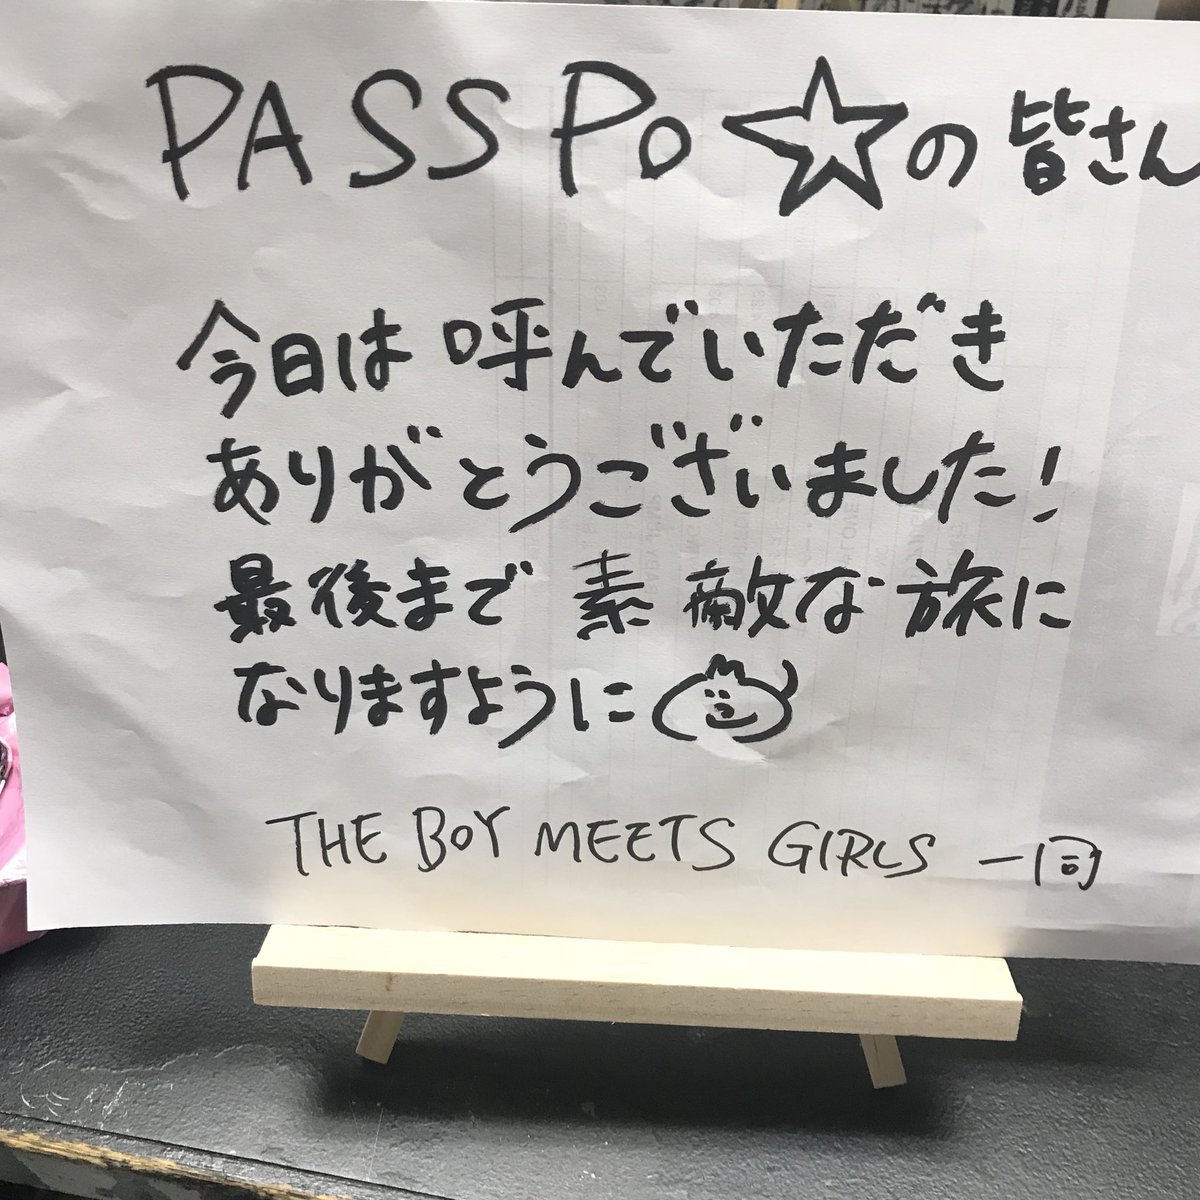 PASSPO☆の皆さん
今日は呼んでいただき
ありがとうございました!
最後まで素敵な旅に
なりますように
THE BOY MEETS GIRLS 一同